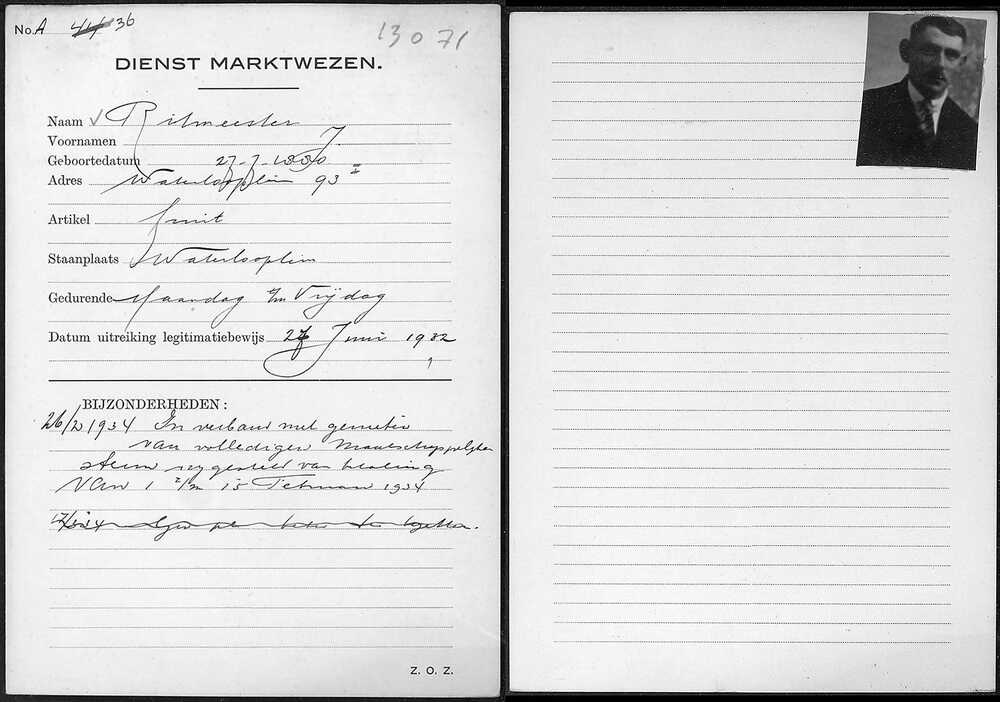 No. A 44 36
13071
DIENST MARKTWEZEN.
Naam Ritmeester
Voornamen J.
Geboortedatum 27-7-1880
Adres Waterlooplein 93 I
Artikel fruit
Staanplaats Waterlooplein
Gedurende Maandag t/m Vrijdag
Datum uitreiking legitimatiebewijs Juni 1932
BIJZONDERHEDEN:
26/2 1934 In verband met genieten
van volledigen Maatschappelijken
steun vrijgesteld van betaling
van 1 t/m 15 Februari 1934
Z. O. Z.